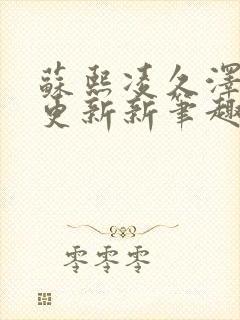 蘇熙凌久澤
更新新筆趣
零零零